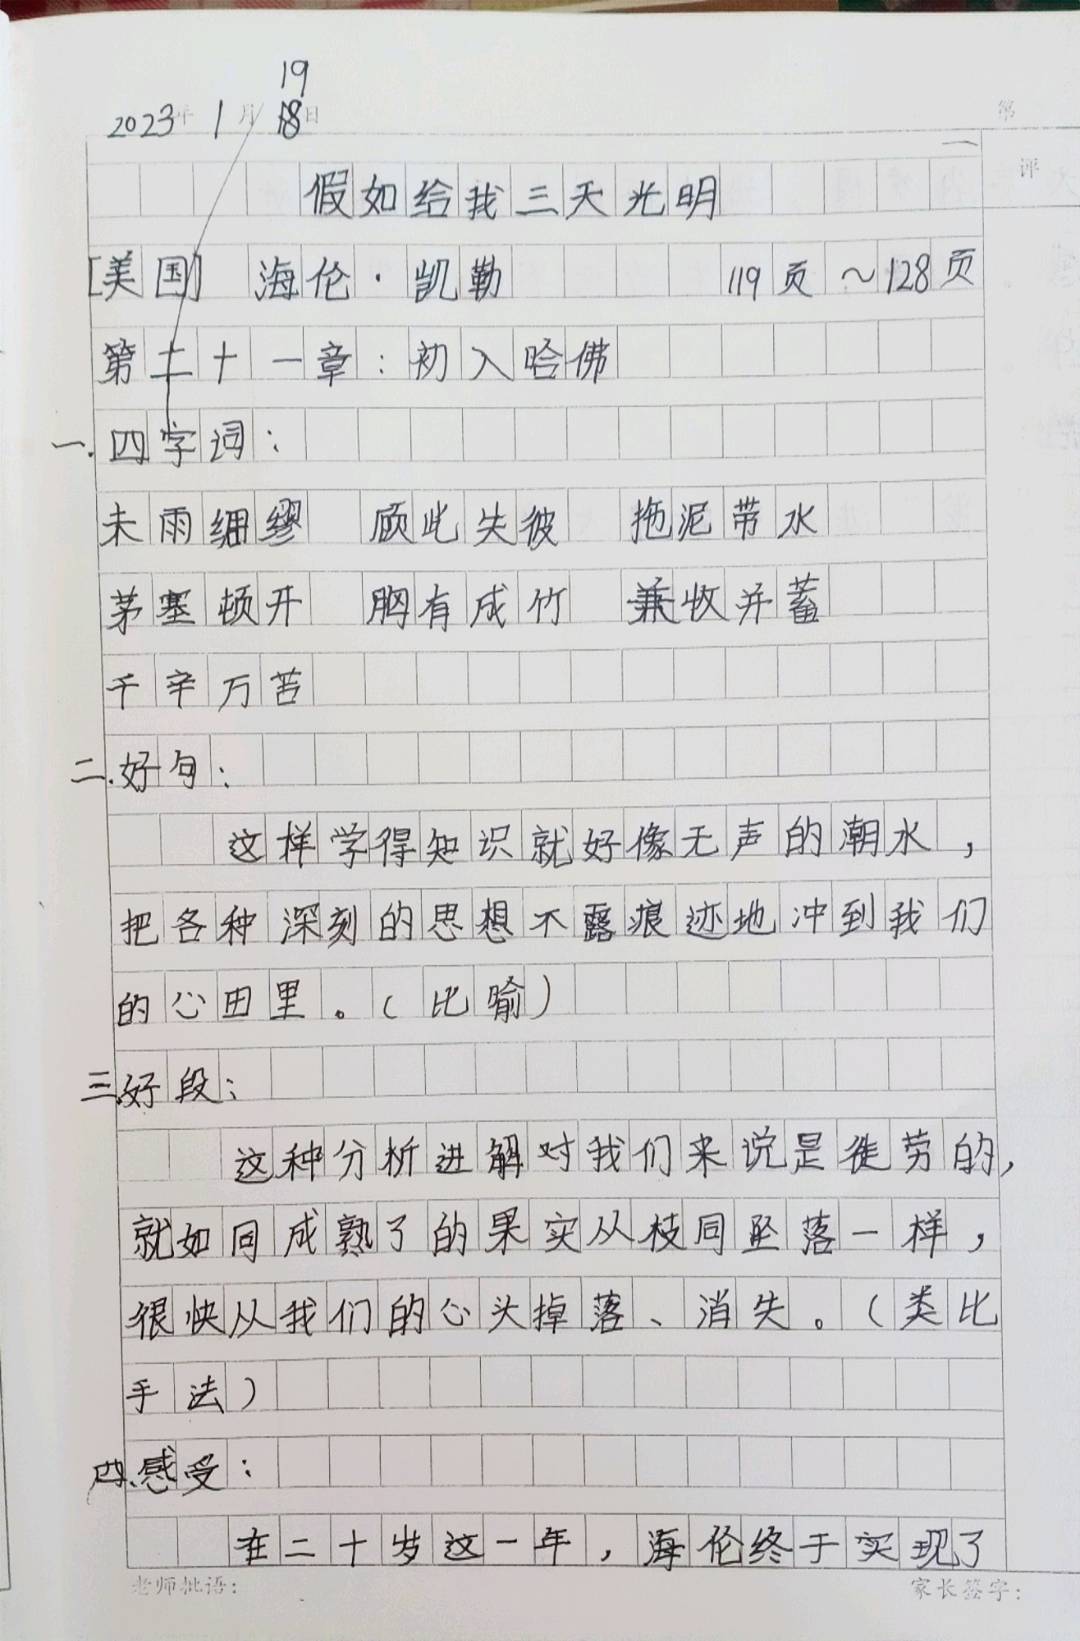 19
2023年1月18日
第
评
假如给我三天光明
[美国] 海伦·凯勒 119页~128页
第二十一章:初入哈佛
一.四字词:
未雨绸缪 顾此失彼 拖泥带水
茅塞顿开 胸有成竹 兼收并蓄
千辛万苦
二.好句:
这样学得知识就好像无声的潮水,
把各种深刻的思想不露痕迹地冲到我们
的心田里。(比喻)
三.好段:
这种分析进解对我们来说是徒劳的,
就如同成熟了的果实从枝同坠落一样,
很快从我们的心头掉落、消失。(类比
手法)
四.感受:
在二十岁这一年,海伦终于实现了
老师批语: 家长签字: